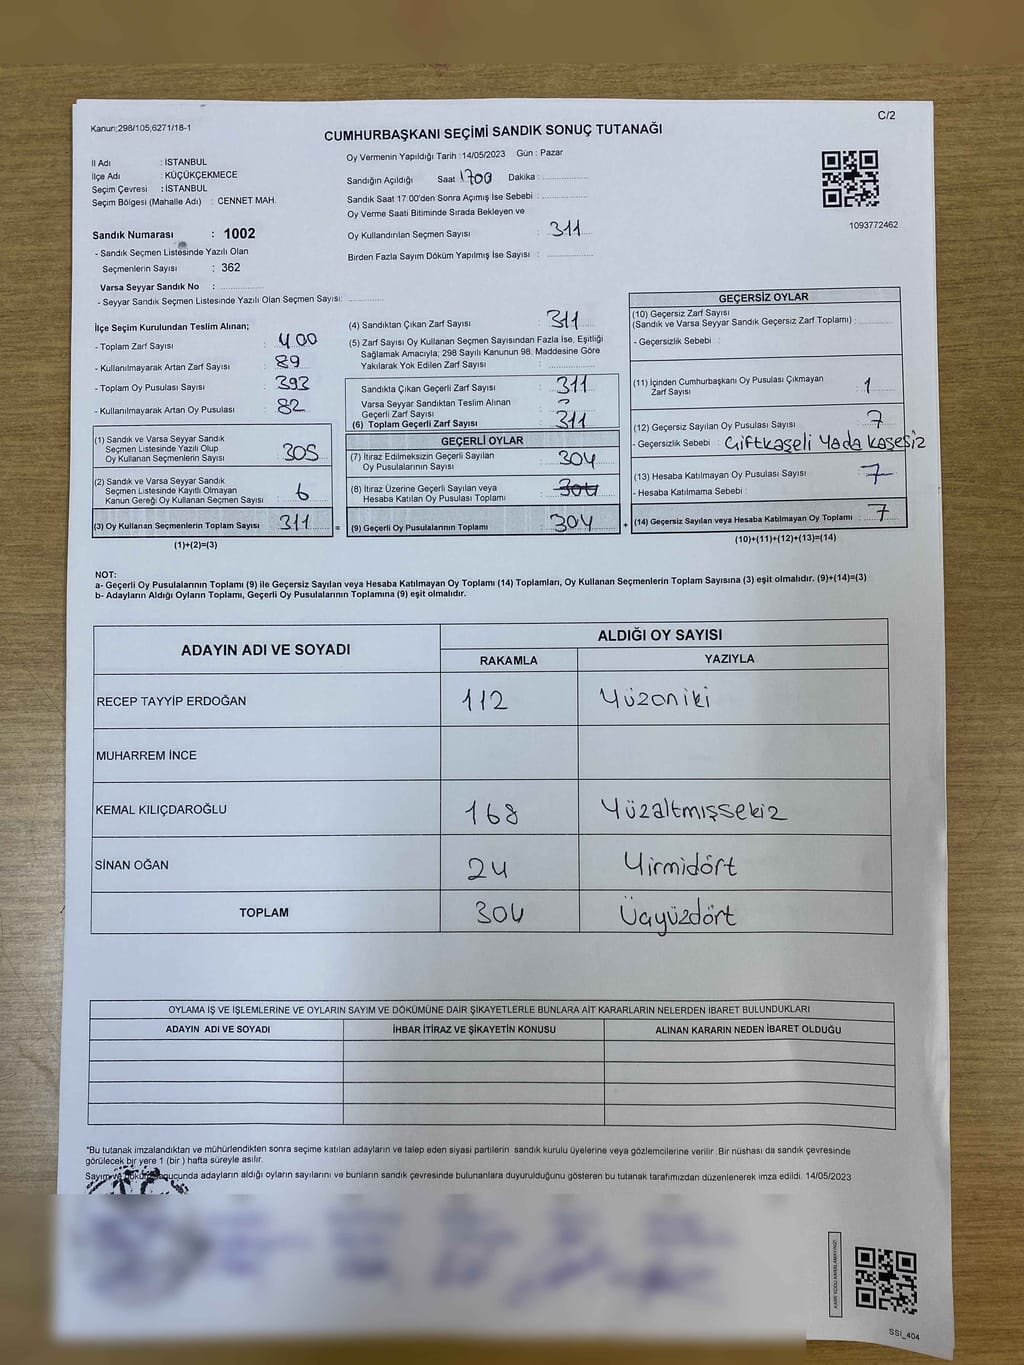 Kanun;298/105;6271/18-1
C/2
CUMHURBAŞKANI SEÇİMİ SANDIK SONUÇ TUTANAĞI
İl Adı : İSTANBUL
İlçe Adı : KÜÇÜKÇEKMECE
Seçim Çevresi : İSTANBUL
Seçim Bölgesi (Mahalle Adı) : CENNET MAH.
Sandık Numarası : 1002
- Sandık Seçmen Listesinde Yazılı Olan
Seçmenlerin Sayısı : 362
Varsa Seyyar Sandık No :
- Seyyar Sandık Seçmen Listesinde Yazılı Olan Seçmen Sayısı:
Oy Vermenin Yapıldığı Tarih :14/05/2023 Gün : Pazar
Sandığın Açıldığı Saat 1700 Dakika :
Sandık Saat 17.00'den Sonra Açımış İse Sebebi :
Oy Verme Saati Bitiminde Sırada Bekleyen ve
Oy Kullandırılan Seçmen Sayısı : 311
Birden Fazla Sayım Döküm Yapılmış İse Sayısı :
1093772462
İlçe Seçim Kurulundan Teslim Alınan;
- Toplam Zarf Sayısı : 400
- Kullanılmayarak Artan Zarf Sayısı : 89
- Toplam Oy Pusulası Sayısı : 393
- Kullanılmayarak Artan Oy Pusulası : 82
(1) Sandık ve Varsa Seyyar Sandık
Seçmen Listesinde Yazılı Olup
Oy Kullanan Seçmenlerin Sayısı : 305
(2) Sandık ve Varsa Seyyar Sandık
Seçmen Listesinde Kayıtlı Olmayan
Kanun Gereği Oy Kullanan Seçmen Sayısı : 6
(3) Oy Kullanan Seçmenlerin Toplam Sayısı : 311 =
(1)+(2)=(3)
(4) Sandıktan Çıkan Zarf Sayısı : 311
(5) Zarf Sayısı Oy Kullanan Seçmen Sayısından Fazla İse, Eşitliği
Sağlamak Amacıyla; 298 Sayılı Kanunun 98. Maddesine Göre
Yakılarak Yok Edilen Zarf Sayısı :
Sandıkta Çıkan Geçerli Zarf Sayısı : 311
Varsa Seyyar Sandıktan Teslim Alınan
Geçerli Zarf Sayısı :
(6) Toplam Geçerli Zarf Sayısı : 311
GEÇERLİ OYLAR
(7) İtiraz Edilmeksizin Geçerli Sayılan
Oy Pusulalarının Sayısı : 304
(8) İtiraz Üzerine Geçerli Sayılan veya
Hesaba Katılan Oy Pusulası Toplamı : 304
(9) Geçerli Oy Pusulalarının Toplamı : 304 +
GEÇERSİZ OYLAR
(10) Geçersiz Zarf Sayısı
(Sandık ve Varsa Seyyar Sandık Geçersiz Zarf Toplamı) :
- Geçersizlik Sebebi :
(11) İçinden Cumhurbaşkanı Oy Pusulası Çıkmayan
Zarf Sayısı : 1
(12) Geçersiz Sayılan Oy Pusulası Sayısı : 7
- Geçersizlik Sebebi : Çiftkaşeli Yada Kaşesiz
(13) Hesaba Katılmayan Oy Pusulası Sayısı : 7
- Hesaba Katılmama Sebebi :
(14) Geçersiz Sayılan veya Hesaba Katılmayan Oy Toplamı : 7
(10)+(11)+(12)+(13)=(14)
NOT:
a- Geçerli Oy Pusulalarının Toplamı (9) ile Geçersiz Sayılan veya Hesaba Katılmayan Oy Toplamı (14) Toplamları, Oy Kullanan Seçmenlerin Toplam Sayısına (3) eşit olmalıdır. (9)+(14)=(3)
b- Adayların Aldığı Oyların Toplamı, Geçerli Oy Pusulalarının Toplamına (9) eşit olmalıdır.
ADAYIN ADI VE SOYADI
ALDIĞI OY SAYISI
RAKAMLA YAZIYLA
RECEP TAYYİP ERDOĞAN 112 Yüzoniki
MUHARREM İNCE
KEMAL KILIÇDAROĞLU 168 Yüzaltmışsekiz
SİNAN OĞAN 24 Yirmidört
TOPLAM 304 Üçyüzdört
OYLAMA İŞ VE İŞLEMLERİNE VE OYLARIN SAYIM VE DÖKÜMÜNE DAİR ŞİKAYETLERLE BUNLARA AİT KARARLARIN NELERDEN İBARET BULUNDUKLARI
ADAYIN ADI VE SOYADI İHBAR İTİRAZ VE ŞİKAYETİN KONUSU ALINAN KARARIN NEDEN İBARET OLDUĞU
*Bu tutanak imzalandıktan ve mühürlendikten sonra seçime katılan adayların ve talep eden siyasi partilerin sandık kurulu üyelerine veya gözlemcilerine verilir .Bir nüshası da sandık çevresinde
görülecek bir yere 1 (bir ) hafta süreyle asılır.
Sayım ve döküm sonucunda adayların aldığı oyların sayılarını ve bunların sandık çevresinde bulunanlara duyurulduğunu gösteren bu tutanak tarafımızdan düzenlenerek imza edildi. 14/05/2023
KARE KODU KARALAMAYINIZ!
SSİ_404